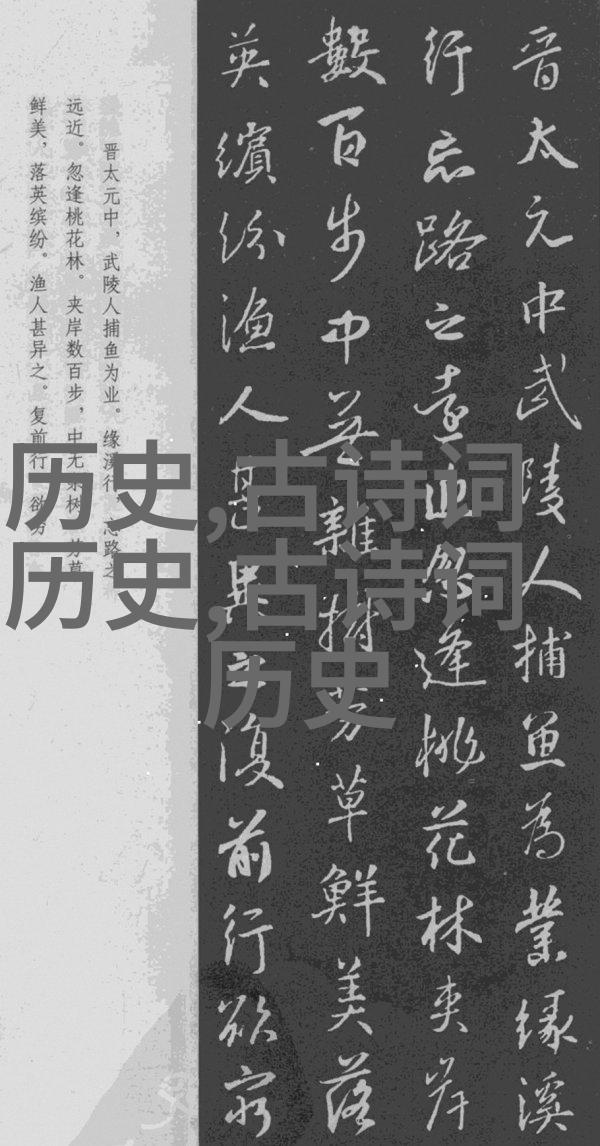 晋太元中武陵人捕魚為業緣溪
行忘路之遠近忽逢桃花林夾岸
數百步中無雜樹芳草鮮美落
英繽紛漁人甚異之復前行欲窮
晋太元中，武陵人捕鱼为业。缘溪行，忘路之
远近。忽逢桃花林。夹岸数百步，中无杂树，芳草
鲜美，落英缤纷。渔人甚异之。复前行，欲穷
历史,古诗词
历史,古诗词
历史